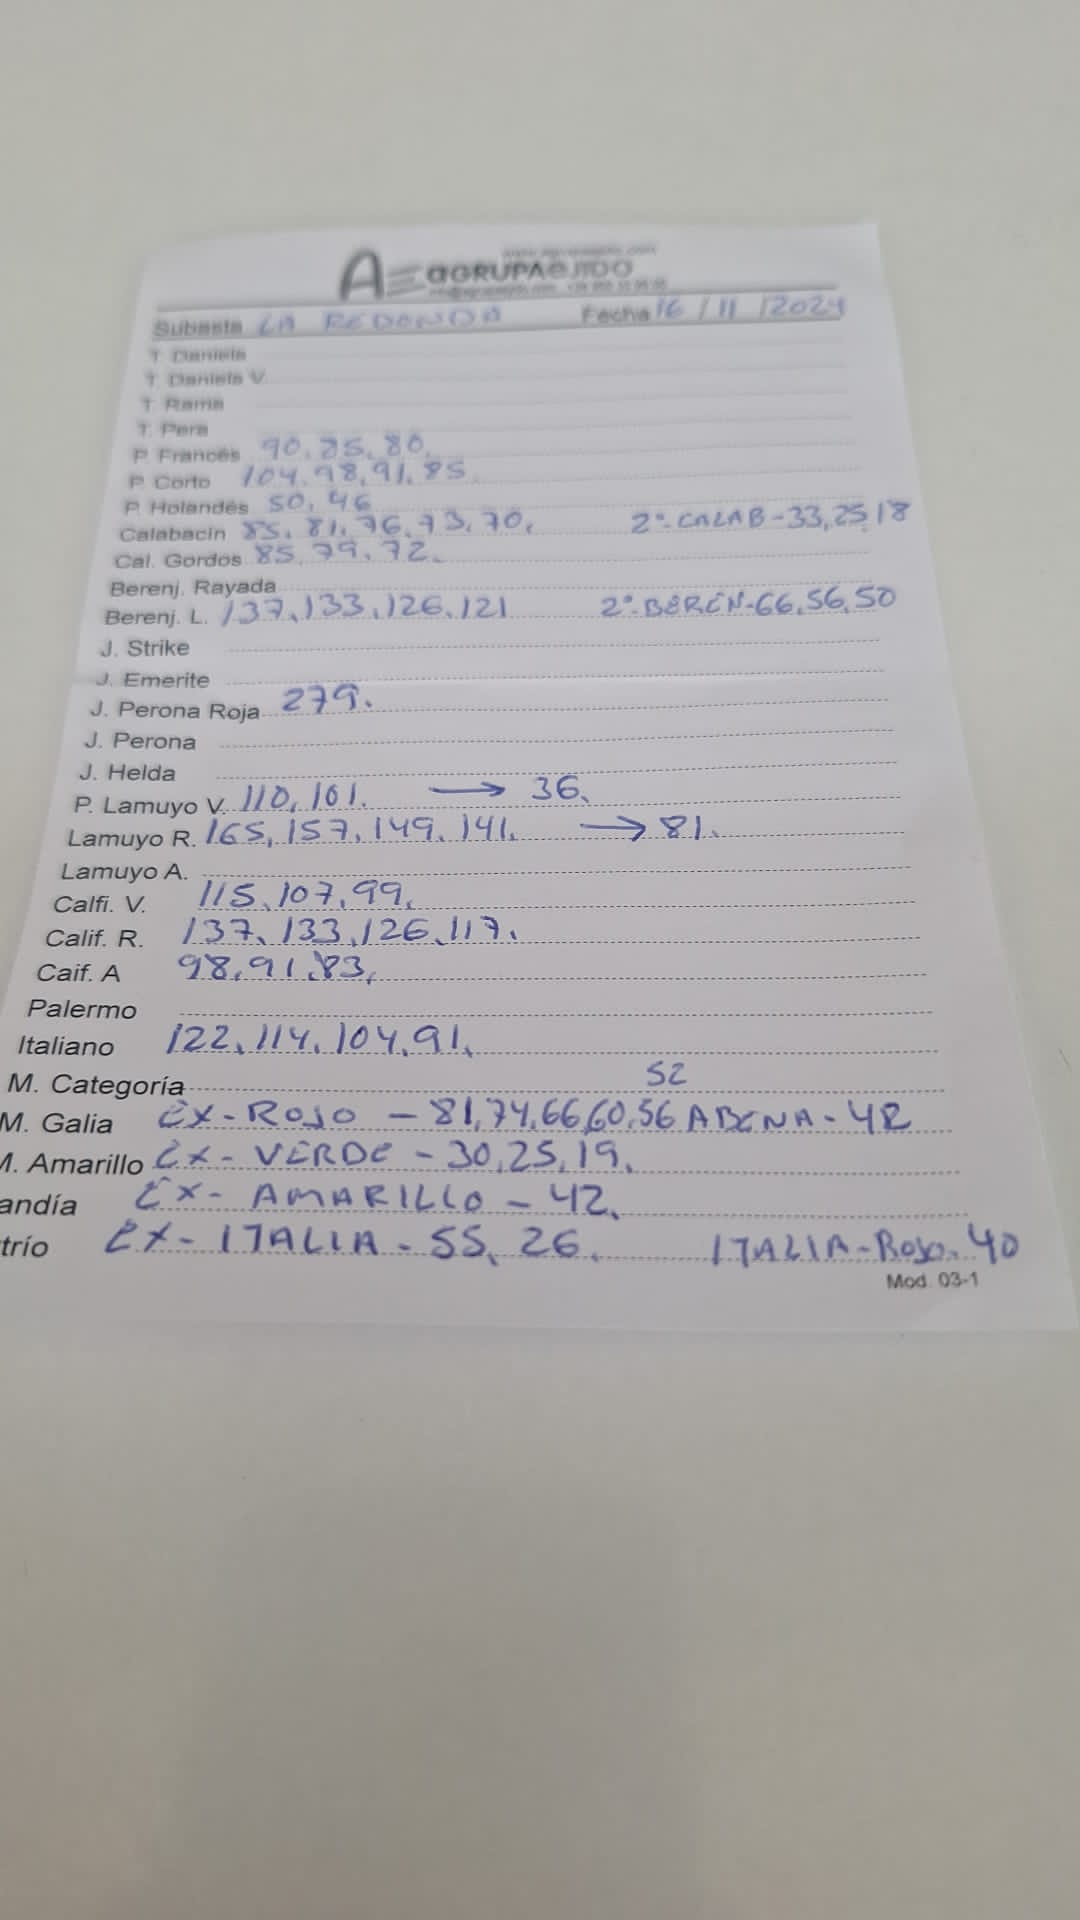 AGRUPAEJIDO
Subasta LA REDONDA Fecha 16 / 11 / 2024
T. Daniela
T. Daniela V.
T. Rama
T. Pera
P. Francés 90, 85, 80,
P. Corto 104, 98, 91, 85
P. Holandés 50, 46
Calabacín 85, 81, 76, 73, 70, 2º CALAB - 33, 25, 18
Cal. Gordos 85, 79, 72.
Berenj. Rayada
Berenj. L. 137, 133, 126, 121 2º BEREN - 66, 56, 50
J. Strike
J. Emerite
J. Perona Roja 279.
J. Perona
J. Helda
P. Lamuyo V. 110, 101. → 36.
Lamuyo R. 165, 157, 149, 141. → 81.
Lamuyo A.
Calfi. V. 115, 107, 99,
Calif. R. 137, 133, 126, 117.
Caif. A 98, 91, 83,
Palermo
Italiano 122, 114, 104, 91.
M. Categoría 52
M. Galia EX - ROJO - 81, 74, 66, 60, 56 - 42
M. Amarillo EX - VERDE - 30, 25, 19.
andía EX - AMARILLO - 42.
trío EX - ITALIA - 55, 26. ITALIA - ROJO. 40
Mod. 03-1